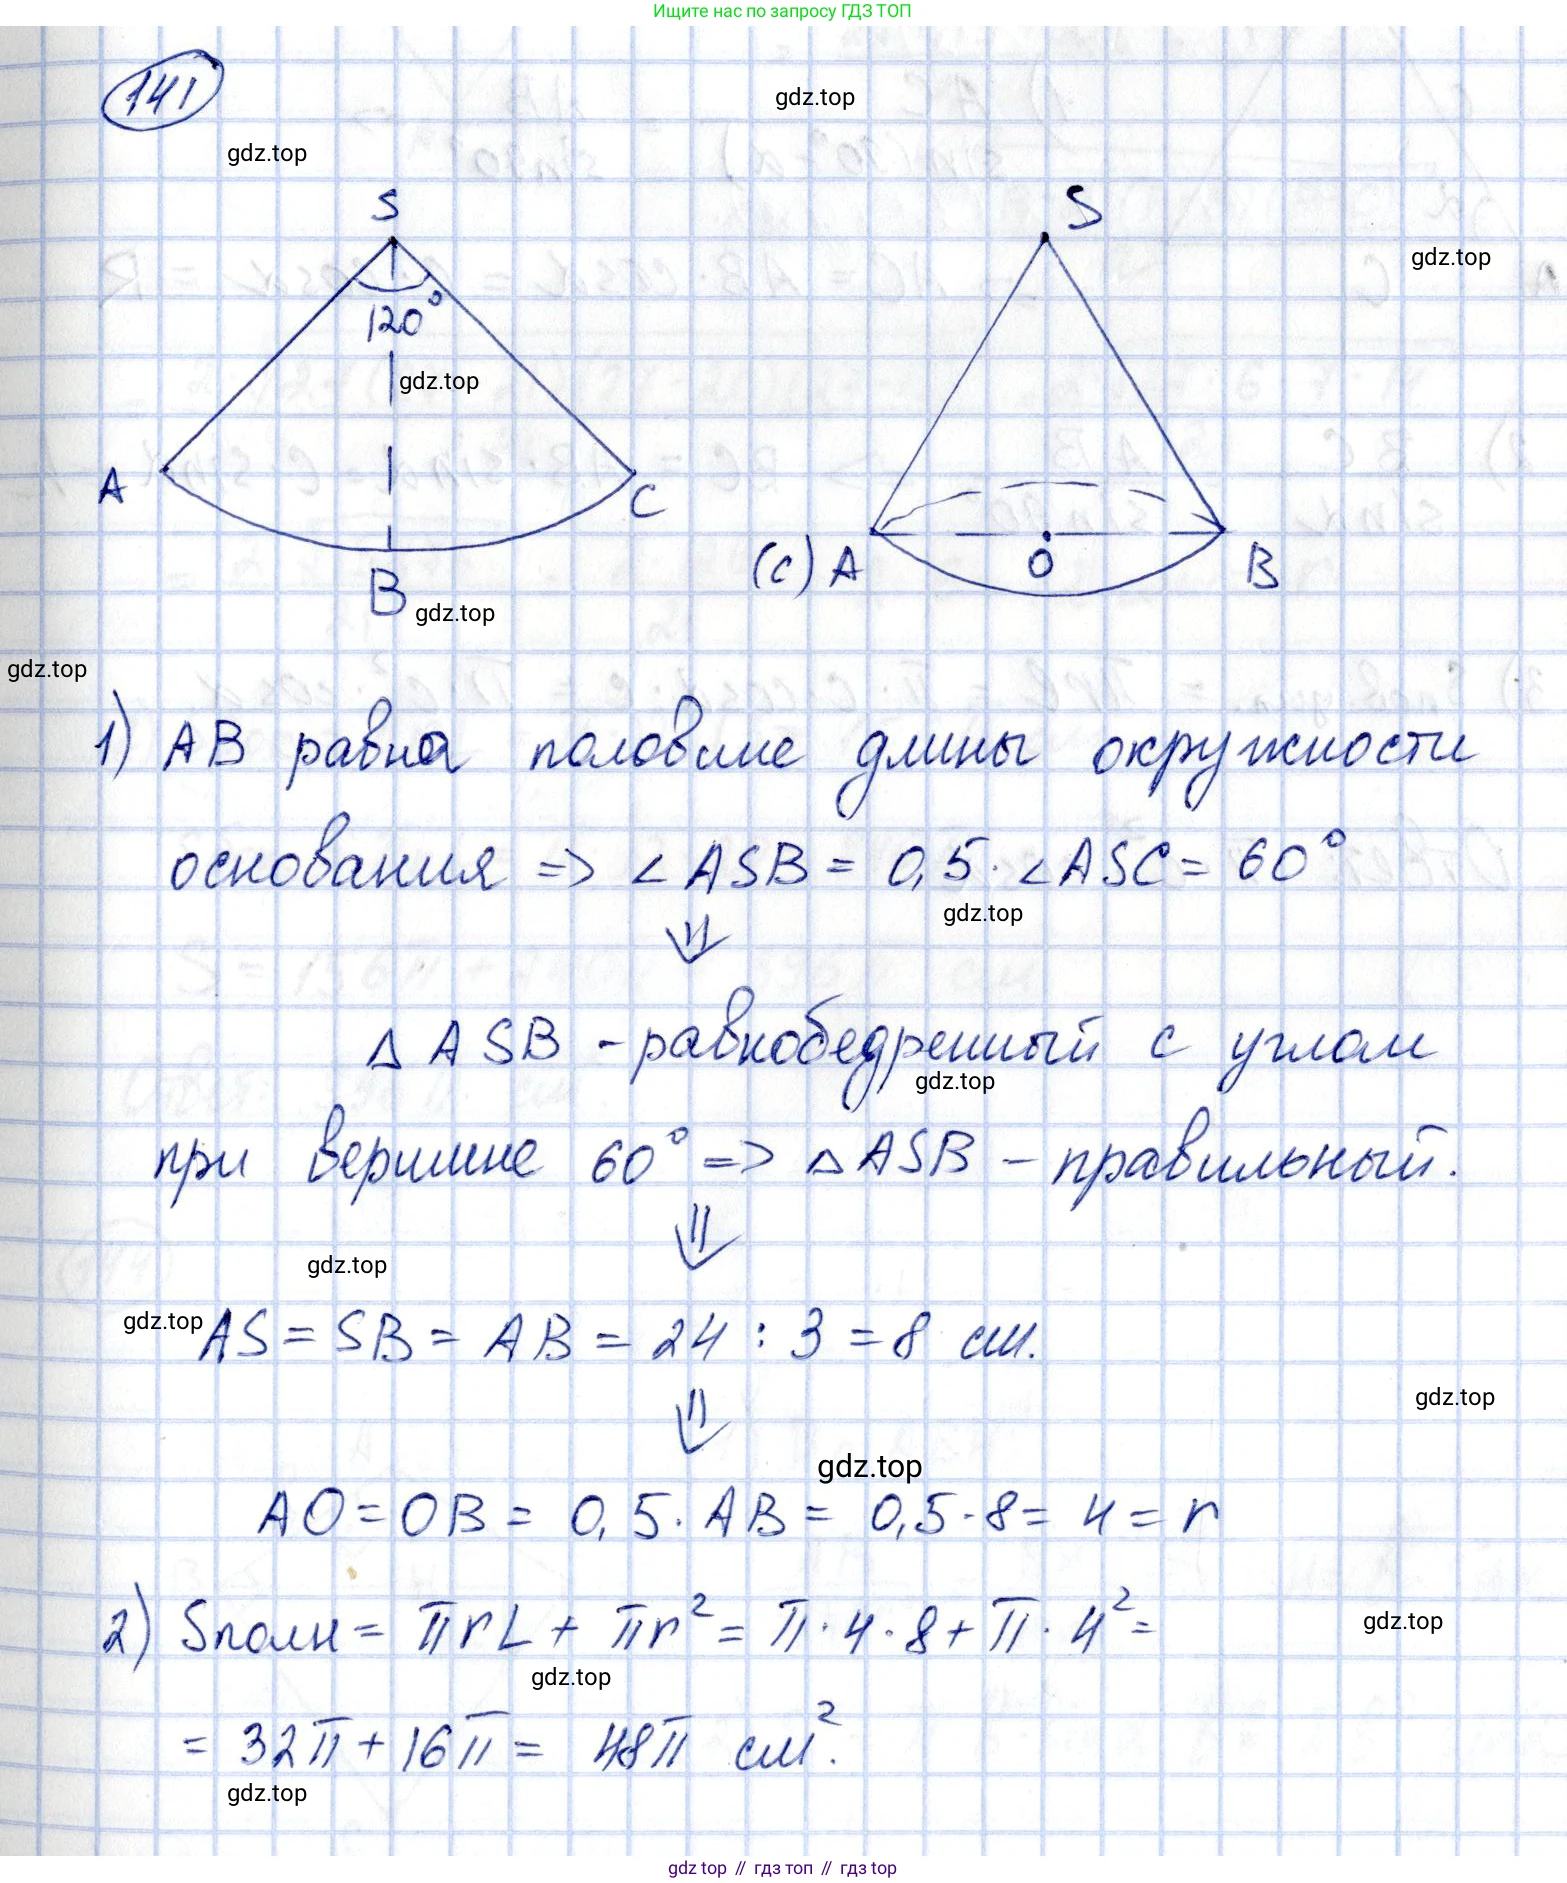 Ищите нас по запросу ГДЗ ТОП
141
gdz.top
gdz.top
S
S
gdz.top
120°
gdz.top
A
C
(c) A
O
B
B
gdz.top
gdz.top
1) AB равна половине длины окружности
основания => ∠ASB = 0,5 · ∠ASC = 60°
gdz.top
⇓
△ ASB - равнобедренный с углом
gdz.top
при вершине 60° => △ASB - правильный.
⇓
gdz.top
gdz.top
AS = SB = AB = 24 : 3 = 8 см.
⇓
gdz.top
gdz.top
AO = OB = 0,5 · AB = 0,5 · 8 = 4 = r
2) Sполн = πrL + πr² = π · 4 · 8 + π · 4² =
gdz.top
gdz.top
= 32π + 16π = 48π см².
gdz.top
gdz top // гдз топ // гдз top